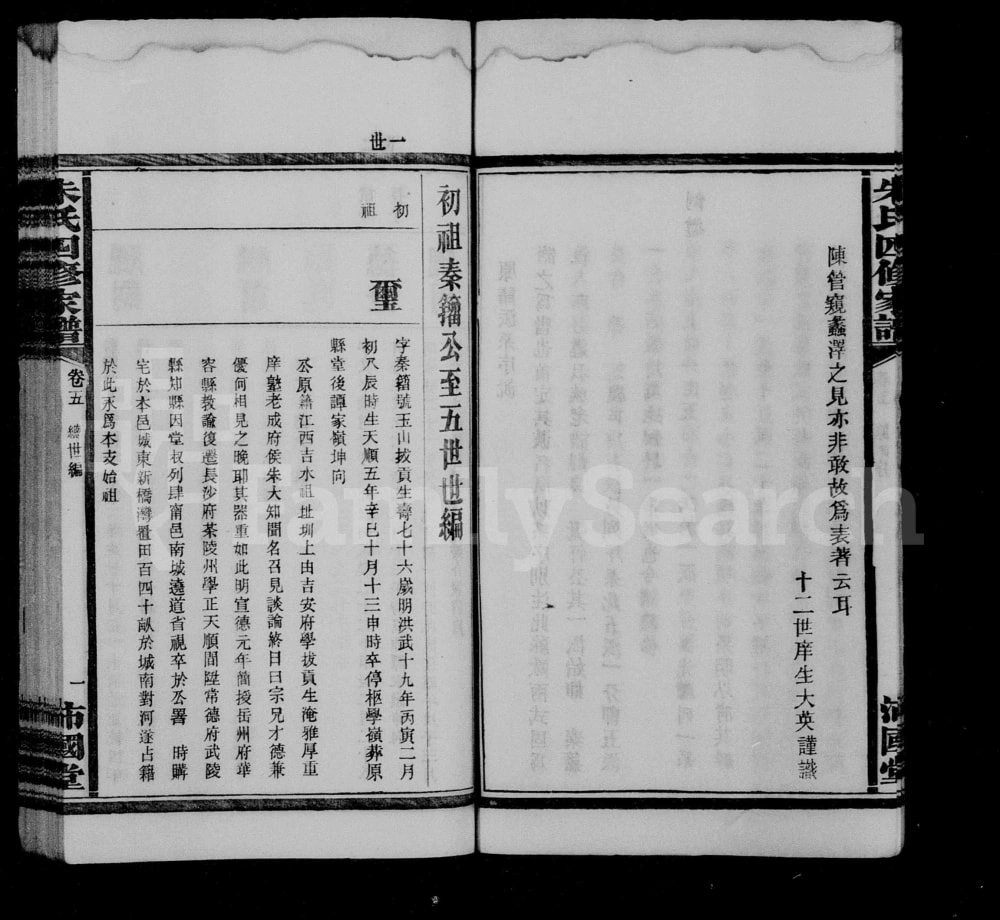 朱氏四修家譜
沛國堂
陳管窺蠡澤之見亦非敢故爲表著云耳
十二世庠生大英謹識
初祖秦籒公至五世世編
一世
初祖
璽
字秦籒號玉山拔貢生壽七十六歲明洪武十九年丙寅二月
初八辰時生天順五年辛巳十月十三申時卒停柩學嶺葬原
縣堂後譚家嶺坤向
公原籍江西吉水祖址圳上由吉安府學拔貢生淹雅厚重
庠塾老成府侯朱大知聞名召見談論終日曰宗兄才德兼
優何相見之晚耶其器重如此明宣德元年簡授岳州府華
容縣教諭復遷長沙府茶陵州學正天順間陞常德府武陵
縣知縣因堂叔列肆南邑南城遶道省視卒於公署 時購
宅於本邑城東新橋灣置田百四十畝於城南對河遂占籍
於此永爲本支始祖
朱氏四修家譜
卷五 續世編
一
沛國堂
FamilySearch